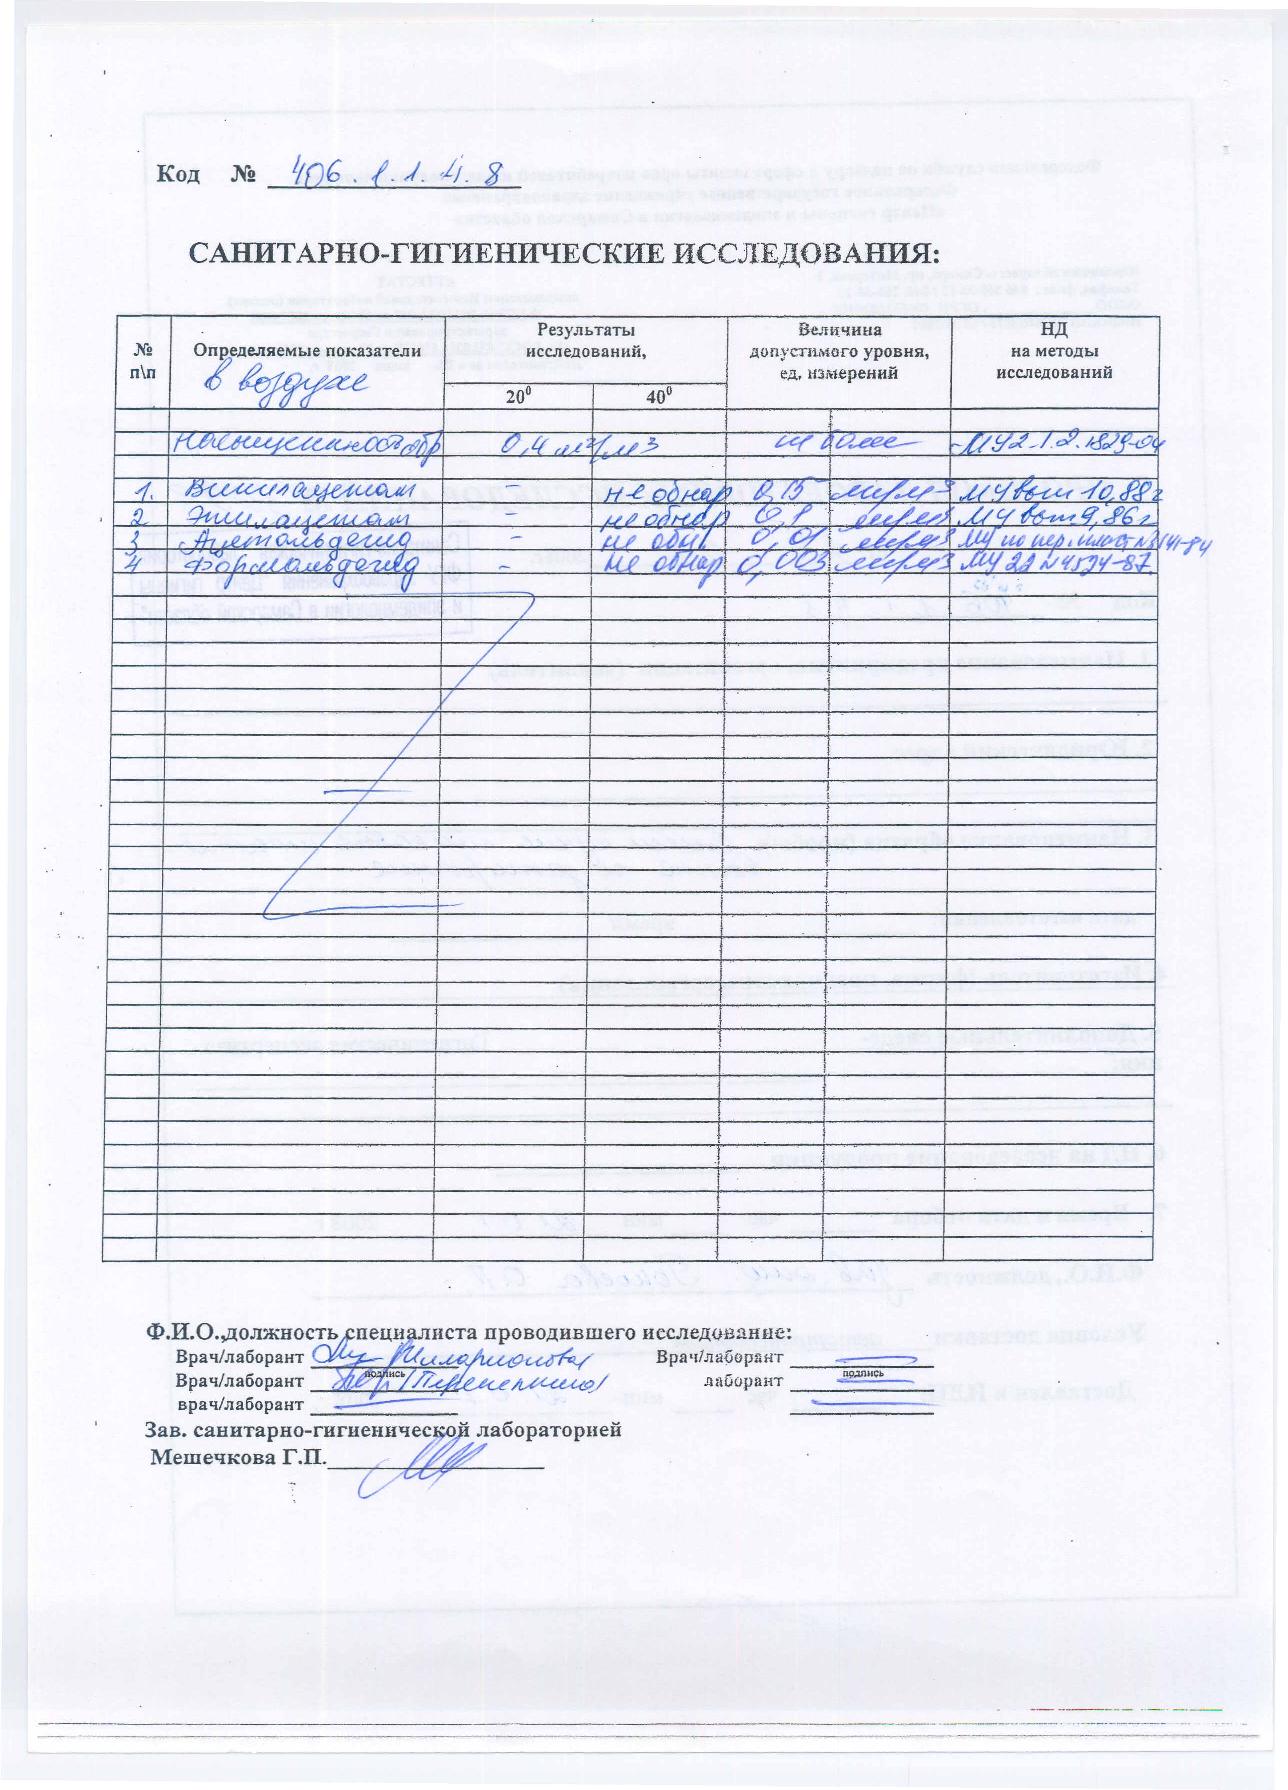 Код № 406.1.1.4.8
САНИТАРНО-ГИГИЕНИЧЕСКИЕ ИССЛЕДОВАНИЯ:
№ п\п Определяемые показатели в воздухе Результаты исследований, Величина допустимого уровня, ед, измерений НД на методы исследований
20⁰ 40⁰
Насыщенность обр 0,4 м2/м3 не более МУ2.1.2.1829-04
1. Винилацетат - не обнар 0,15 мг/м3 МУ вып 10,88г
2 Этилацетат - не обнар 0,1 мг/м3 МУ вып 9,86г
3 Ацетальдегид - не обн. 0,01 мг/м3 МУ № 3141-84
4 Формальдегид - не обнар 0,003 мг/м3 МУ 22 №4524-87.
Ф.И.О.,должность специалиста проводившего исследование:
Врач/лаборант Илларионова Врач/лаборант
подпись подпись
Врач/лаборант лаборант
врач/лаборант
Зав. санитарно-гигиенической лабораторией
Мешечкова Г.П.